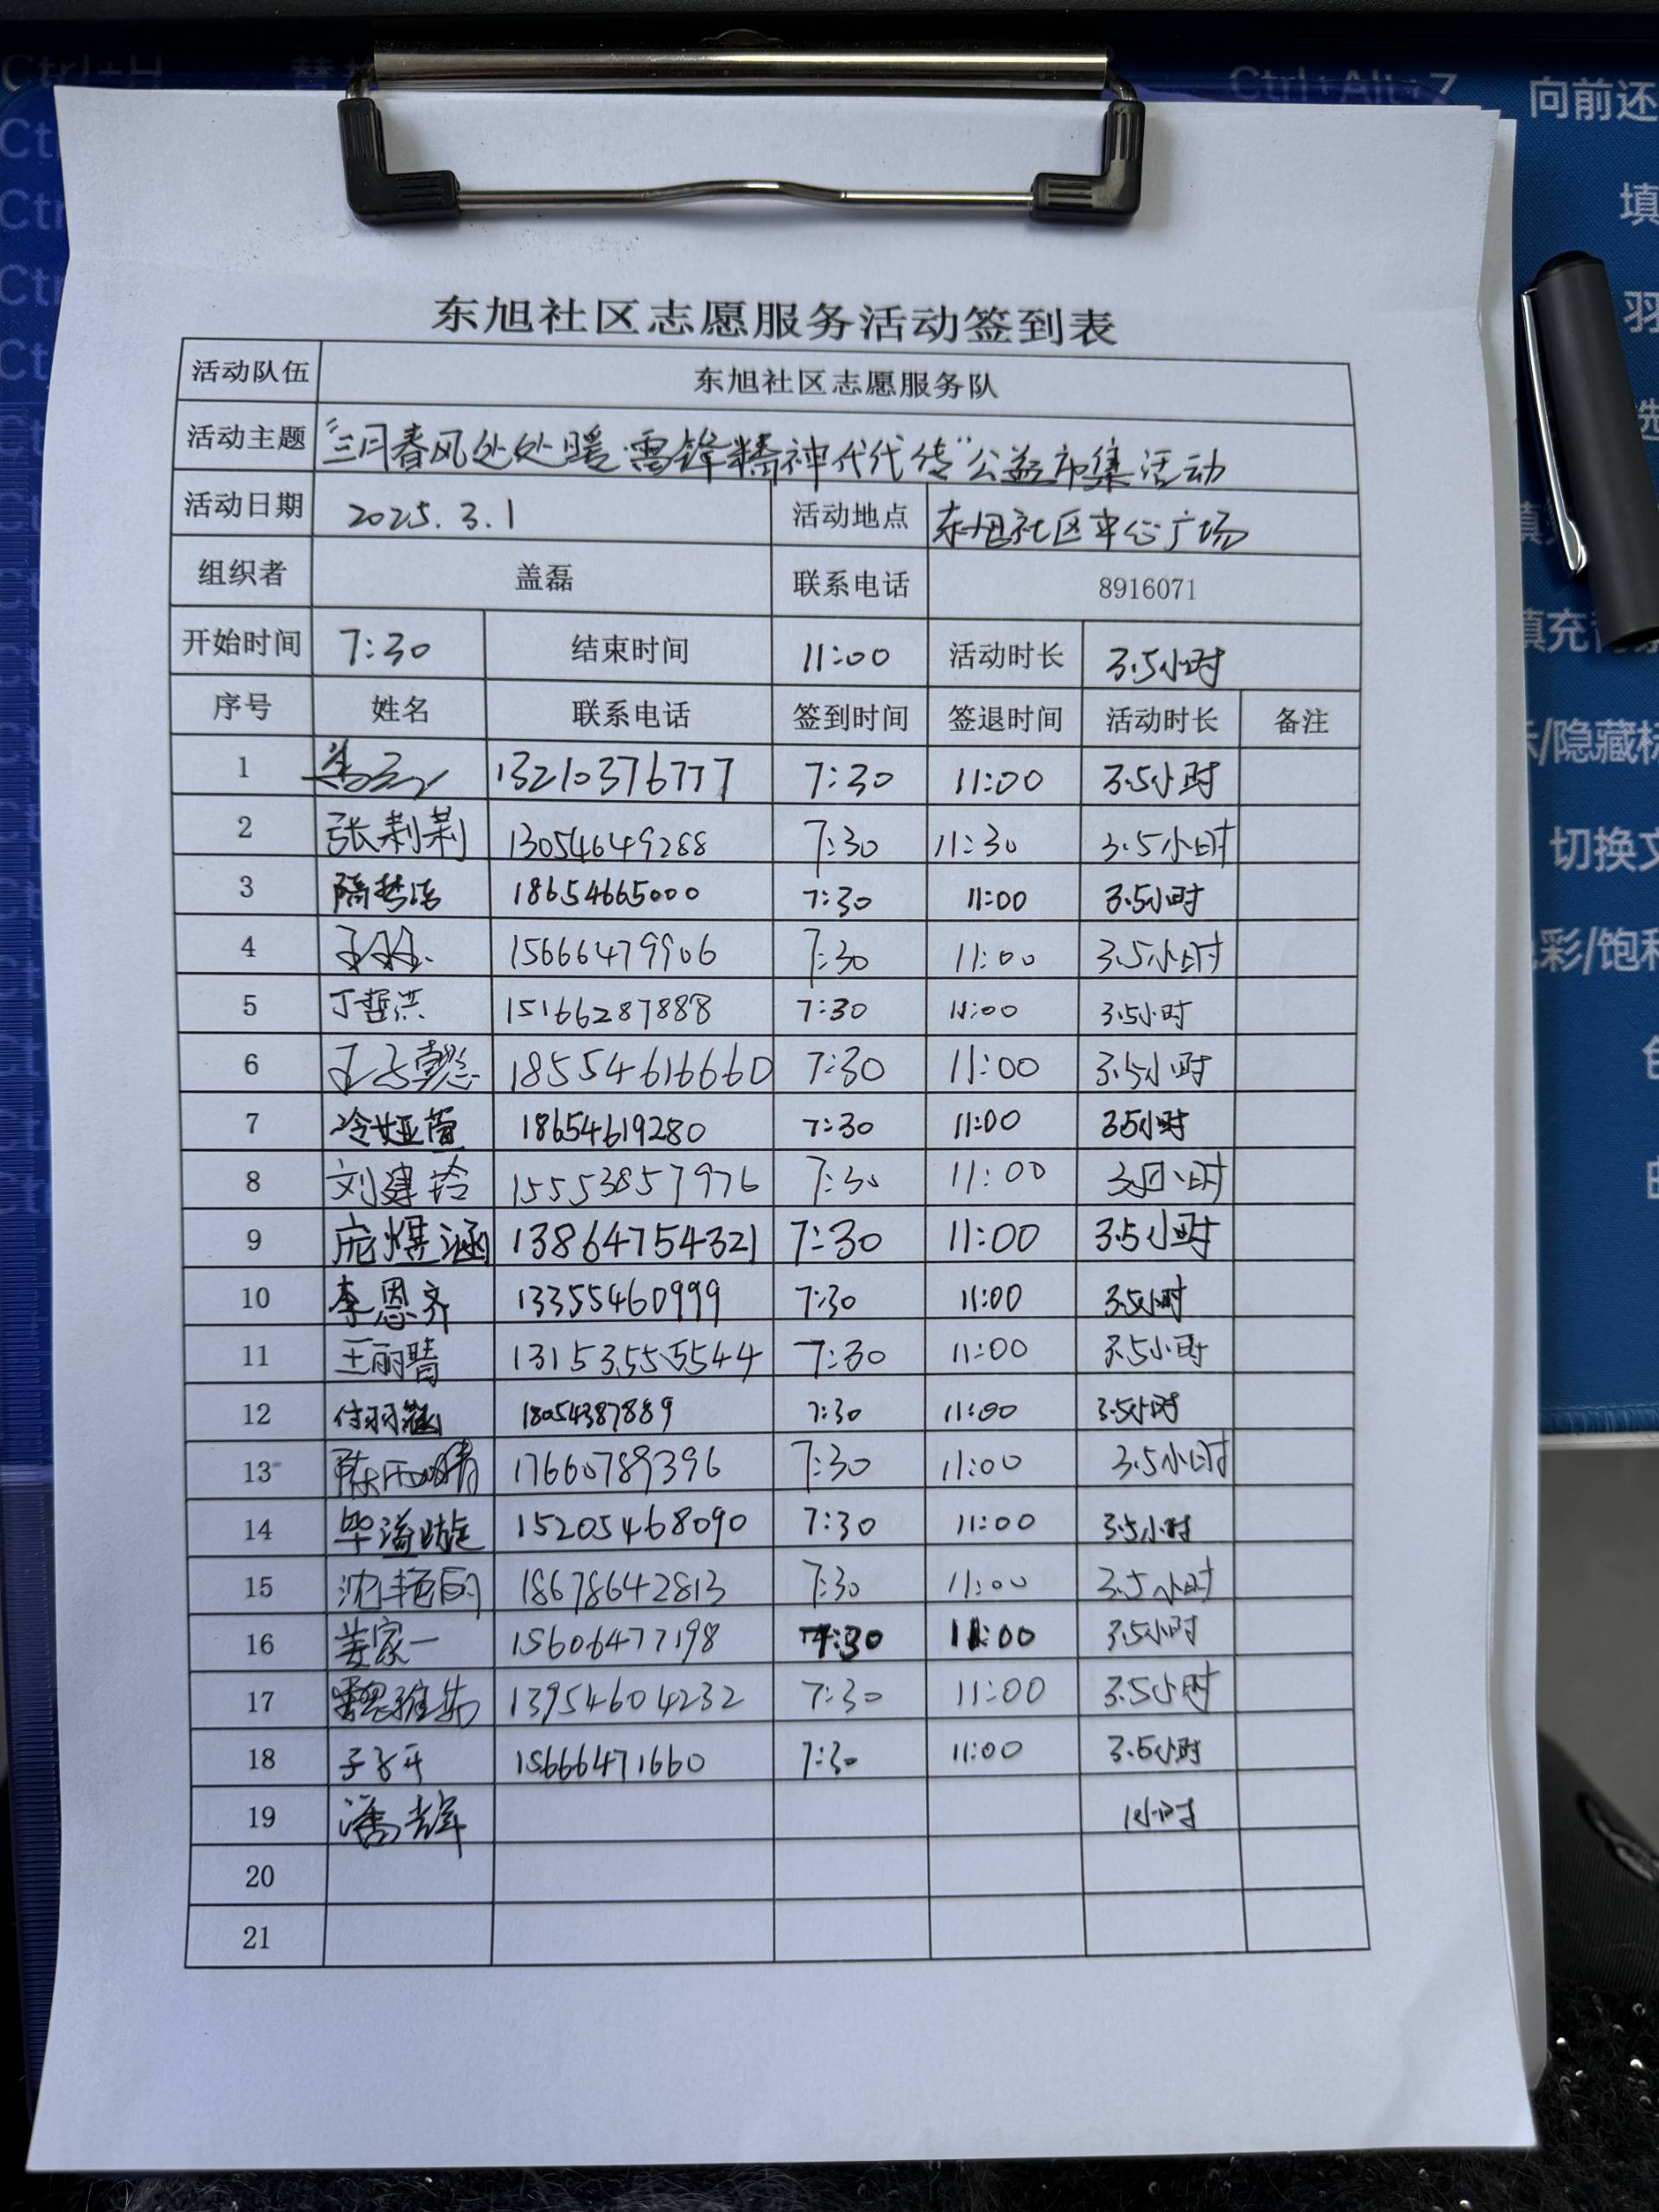 Ctrl+H
Ctrl+Alt+Z
向前还
Ctr
Ctr
填
Ctr
羽
东旭社区志愿服务活动签到表
活动队伍 东旭社区志愿服务队
活动主题 "三月春风处处暖·雷锋精神代代传"公益市集活动
活动日期 2025.3.1 活动地点 东旭社区中心广场
组织者 盖磊 联系电话 8916071
开始时间 7:30 结束时间 11:00 活动时长 3.5小时
序号 姓名 联系电话 签到时间 签退时间 活动时长 备注
1 13210376777 7:30 11:00 3.5小时
2 张莉莉 13054649288 7:30 11:30 3.5小时
3 隋梦浩 18654665000 7:30 11:00 3.5小时
4 15666479906 7:30 11:00 3.5小时
5 丁哲洪 15166287888 7:30 11:00 3.5小时
6 王子懿 18554616660 7:30 11:00 3.5小时
7 冷娅萱 18654619280 7:30 11:00 3.5小时
8 刘建玲 15553857976 7:30 11:00 3.5小时
9 庞煜涵 13864754321 7:30 11:00 3.5小时
10 李恩齐 13355460999 7:30 11:00 3.5小时
11 王丽晴 13153555544 7:30 11:00 3.5小时
12 付羽涵 18054387889 7:30 11:00 3.5小时
13 陈雨晴 17660789396 7:30 11:00 3.5小时
14 毕溢璇 15205468090 7:30 11:00 3.5小时
15 沈艳 18678642813 7:30 11:00 3.5小时
16 姜家一 15606477198 7:30 11:00 3.5小时
17 魏维娜 13954604232 7:30 11:00 3.5小时
18 15666471660 7:30 11:00 3.5小时
19 潘辉 1小时
20
21
填充背景
示/隐藏标
切换文
色彩/饱和